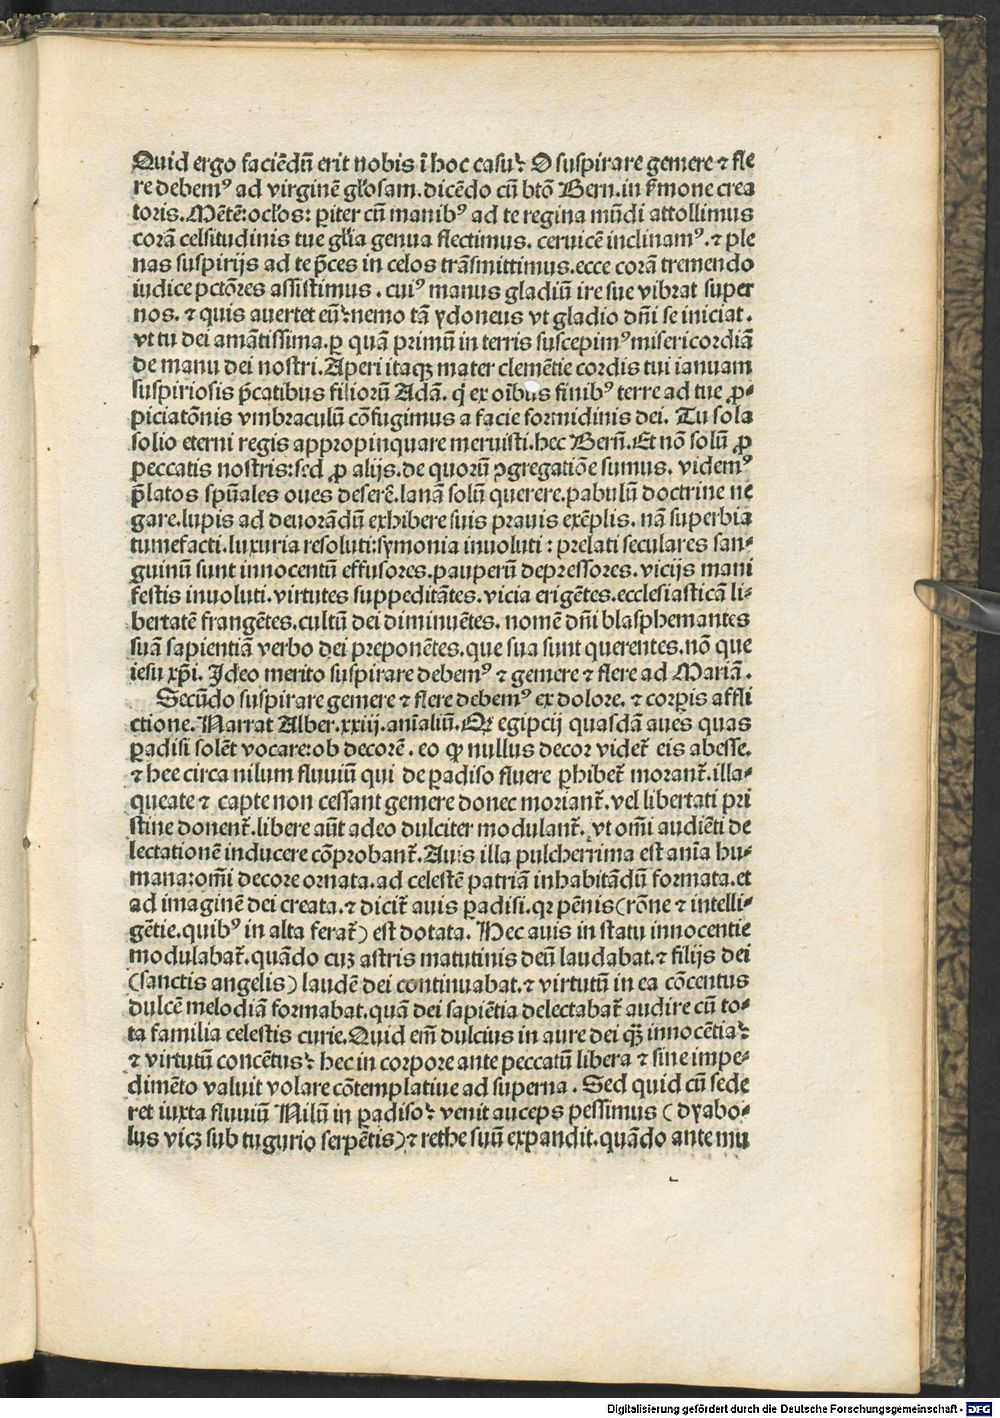 Quid ergo faciēdū erit nobis ī hoc casu? O suspirare gemere ⁊ fle
re debemꝰ ad virginē gl'osam. dicēdo cū btō Bern. in s̄mone crea
toris. Mētē: ocl'os: ꝑiter cū manibꝰ ad te regina mūdi attollimus
corā celsitudinis tue gl'ia genua flectimus. ceruicē inclinamꝰ. ⁊ ple
nas suspirijs ad te p̄ces in celos trāsmittimus. ecce corā tremendo
iudice pctōres assistimus. cuiꝰ manus gladiū ire sue vibrat super
nos. ⁊ quis auertet eū? nemo tā ydoneus vt gladio dn̄i se iniciat.
vt tu dei amātissima. ꝑ quā primū in terris suscepimꝰ misericordiā
de manu dei nostri. Aperi itaqꝫ mater clemētie cordis tui ianuam
suspiriosis p̄catibus filiorū Adā. q̇ ex oībus finibꝰ terre ad tue ꝓ-
piciatōnis vmbraculū cōfugimus a facie formidinis dei. Tu sola
solio eterni regis appropinquare meruisti. hec Bern̄. Et nō solū ꝓ
peccatis nostris: sed ꝓ alijs. de quorū ꝯgregatiōe sumus. videmꝰ
p̄latos spūales oues deserē. lanā solū querere. pabulū doctrine ne
gare. lupis ad deuorādū exhibere suis prauis exēplis. nā superbia
tumefacti. luxuria resoluti: symonia inuoluti: prelati seculares san-
guinū sunt innocentū effusores. pauperū depressores. vicijs mani
festis inuoluti. virtutes suppeditātes. vicia erigētes. ecclesiasticā li-
bertatē frangētes. cultū dei diminuētes. nomē dn̄i blasphemantes
suā sapientiā verbo dei preponētes. que sua sunt querentes. nō que
iesu xp̄i. Ideo merito suspirare debemꝰ ⁊ gemere ⁊ flere ad Mariā.
Secūdo suspirare gemere ⁊ flere debemꝰ ex dolore. ⁊ corꝑis affli
ctione. Narrat Alber. xxiij. anīaliū. Qꝛ egipcij quasdā aues quas
ꝑadisi solēt vocare: ob decorē. eo ꝙ nullus decor videt᷑ eis abesse.
⁊ hee circa nilum fluuiū qui de ꝑadiso fluere ꝑhibet᷑ morant᷑. illa-
queate ⁊ capte non cessant gemere donec moriant᷑. vel libertati pri
stine donent᷑. libere aūt adeo dulciter modulant᷑. vt om̄i audiēti de
lectationē inducere cōprobant᷑. Auis illa pulcherrima est anīa hu-
mana: om̄i decore ornata. ad celestē patriā inhabitādū formata. et
ad imaginē dei creata. ⁊ dicit᷑ auis ꝑadisi. qꝛ pēnis (rōne ⁊ intelli-
gētie. quibꝰ in alta ferat᷑) est dotata. Hec auis in statu innocentie
modulabat᷑. quādo cuꝫ astris matutinis deū laudabat. ⁊ filijs dei
(sanctis angelis) laudē dei continuabat. ⁊ virtutū in ea cōcentus
dulcē melodiā formabat. quā dei sapiētia delectabat᷑ audire cū to-
ta familia celestis curie. Quid em̄ dulcius in aure dei qꝫ̄ innocētia?
⁊ virtutū concētus? hec in corpore ante peccatū libera ⁊ sine impe-
dimēto valuit volare cōtemplatiue ad superna. Sed quid cū sede
ret iuxta fluuiū Nilū in ꝑadiso? venit auceps pessimus (dyabo-
lus vicꝫ sub tugurio serpētis) ⁊ rethe suū expandit. quādo ante mu
Digitalisierung gefördert durch die Deutsche Forschungsgemeinschaft - DFG